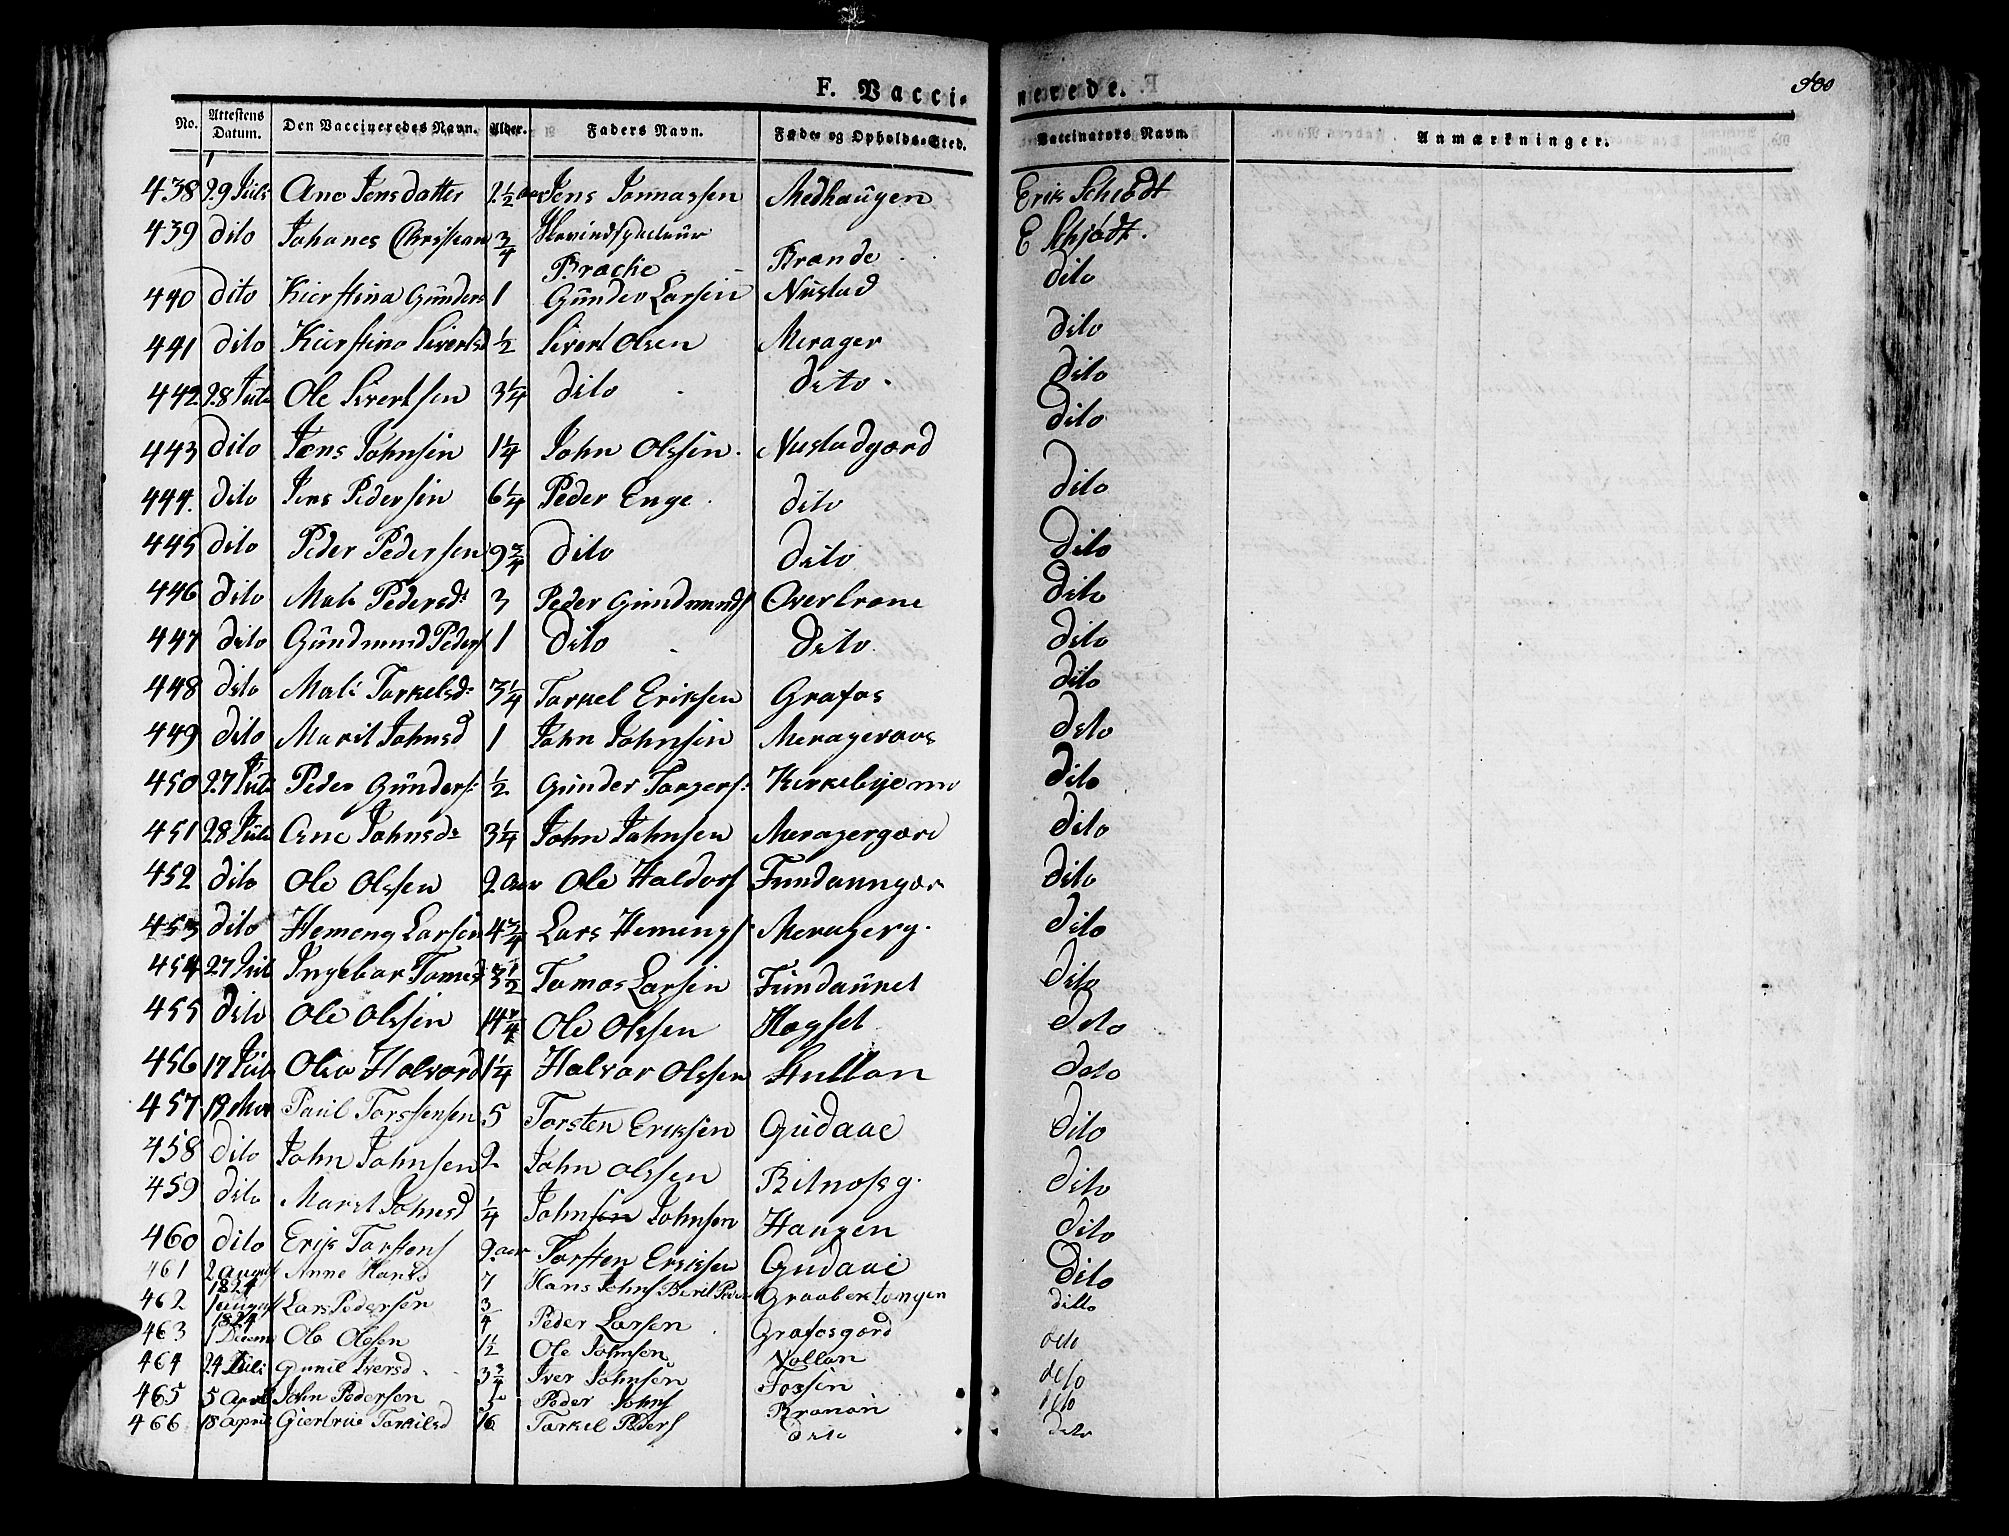 F. Vacci- nerede.
No. Attestens Datum. Den Vaccineredes Navn. Alder. Faders Navn. Føde- og Opholds-Sted. Vaccinators Navn. Anmærkninger.
438 29 Juli Ane Jensdatter 2½ aar Jens Jonnassen Medhaugen Erik Schiødt
439 dito Johanes Christian 3/4 Brache Brande E Schjødt.
440 dito Kierstina Gunders 1 Gunder Larsen Nustad dito
441 dito Kierstina Sivertsd ½ Sivert Olsen Merager dito
442 28 Juli Ole Sivertsen 3¼ dito dito dito
443 dito Jens Johnsen 1¼ John Olssen Nustadgjærd dito
444. dito Jens Pedersen 6¼ Peder Enge dito dito
445 dito Peder Pedersen 9¾ dito dito dito
446 dito Mali Pedersd: 3 Peder Gundmunds Overtrone dito
447 dito Gundmund Peders 1 dito dito dito
448 dito Mali Tarkelsd: 3¼ Tarkel Eriksen Grafos dito
449 dito Marit Johnsd 1 John Johnsen Merageraas dito
450 27 Juli Peder Gunders: ½ Gunder Torgers: Kirkebyemo dito
451 28 Juli Ane Johnsd: 3¼ John Johnsen Meragergær dito
452 dito Ole Olssen 2 aar Ole Haldors Fundaungær dito
453 dito Hemeng Larsen 4¾ Lars Hemengs Meragerg. dito
454 27 Juli Ingebor Tomesd 3½ Tomas Larsen Fundaunet dito
455 dito Ole Olssen 14¼ Ole Olssen Hogset dito
456 17 Juli Olia Halvard 1¼ Halvor Olssen Stullan dito
457 19 Paul Torstensen 5 Torsten Eriksen Gudaae dito
458 dito John Johnsen 2 John Olssen Bitnosg. dito
459 dito Marit Johnsd ¼ Johnsen Johnsen Haugen dito
460 dito Erik Torstens 2 aar Torsten Eriksen Gudaae dito
461 2 august 1824 Anne Hansd 7 Hans Johns Graabektongen dito
462 1 august 1824 Lars Pedersen 3/4 Peder Larsen Grafosgærd
463 1 Decem Ole Olssen 1½ Ole Johnsen Vollan dito
464 24 Juli Gunil Iversd 3¾ Iver Johnsen Fossen dito
465 5 April John Pedersen Peder Johns Kronan dito
466 18 April Giertrue Tarkilsd 16 Tarkel Peders dito dito